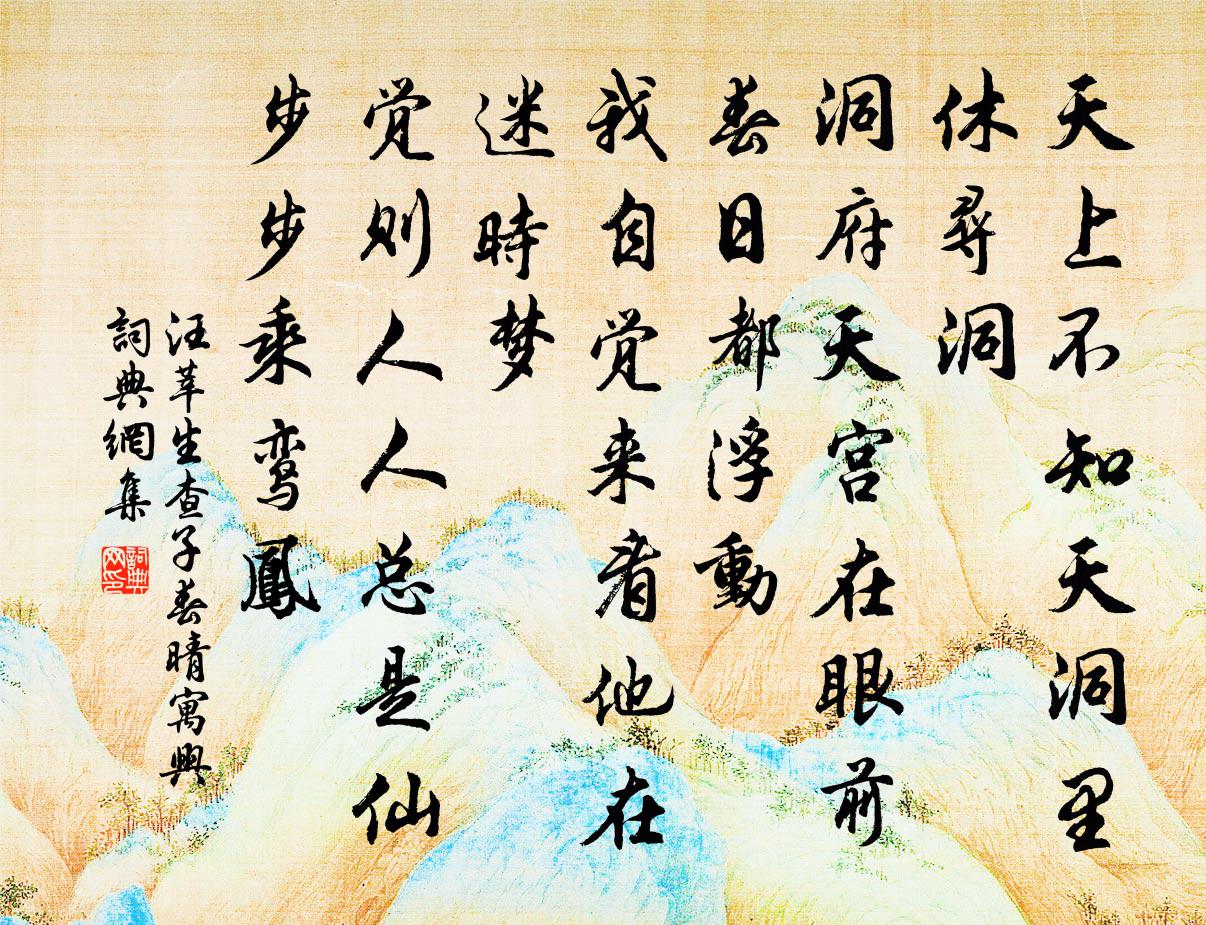 天上不知天洞里
休寻洞
洞府天宫在眼前
春日都浮動
我自觉来看他在
迷時梦
觉则人人总是仙
步步乘鸾鳳
汪莘生查子春晴寓興
詞典網集
詞典网印